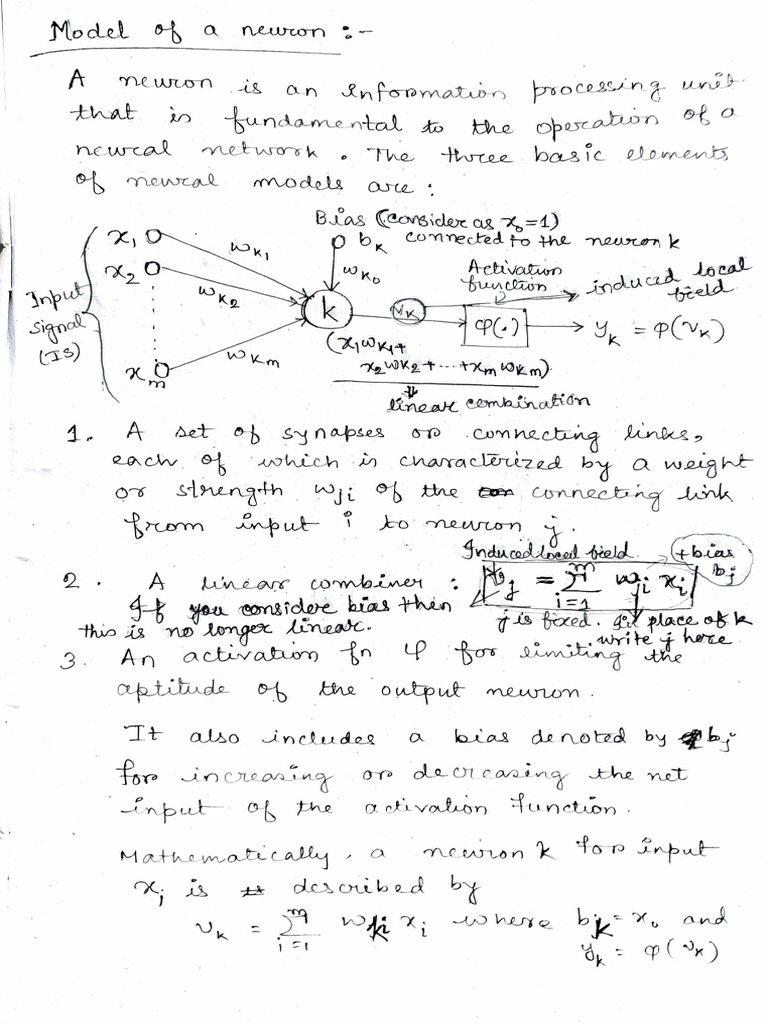 Model of a neuron :-
A neuron is an information processing unit
that is fundamental to the operation of a
neural network. The three basic elements
of neural models are :
Bias (consider as x₀=1)
connected to the neuron k
x₁
w_k1
b_k
w_k0
x₂
w_k2
Input
signal
(IS)
x_m
w_km
k
v_k
Activation
function
induced local
field
φ(.)
y_k = φ(v_k)
(x₁w_k1+
x₂w_k2+ ... +x_m w_km)
linear combination
1. A set of synapses or connecting links,
each of which is characterized by a weight
or strength w_ji of the connecting link
from input i to neuron j.
Induced local field
+bias
b_j
2. A linear combiner : v_j = Σ_{i=1}^{m} w_ji x_i
If you consider bias then
this is no longer linear.
j is fixed. place of k
write j here
3. An activation fn φ for limiting the
aptitude of the output neuron.
It also includes a bias denoted by b_j
for increasing or decreasing the net
input of the activation function.
Mathematically, a neuron k for input
x_i is described by
v_k = Σ_{i=1}^{m} w_ki x_i where b_k = x₀ and
y_k = φ(v_k)